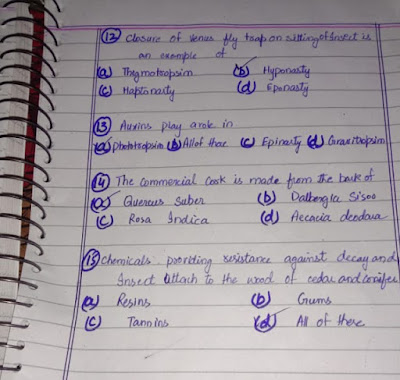 (12) Closure of Venus fly trap on sitting of Insect is
an example of
(a) Thigmotropsim (b) Hyponasty
(c) Haptonasty (d) Eponasty
(13) Auxins play a role in
(a) Phototropsim (b) All of thae (c) Epinasty (d) Gravitropsim
(14) The commercial Cock is made from the bark of
(a) Quercus Suber (b) Dalbergia Sisoo
(c) Rosa Indica (d) Accacia deodara
(15) Chemicals providing resistance against decay and
Insect attach to the wood of cedar and conifer
(a) Resins (b) Gums
(c) Tannins (d) All of these